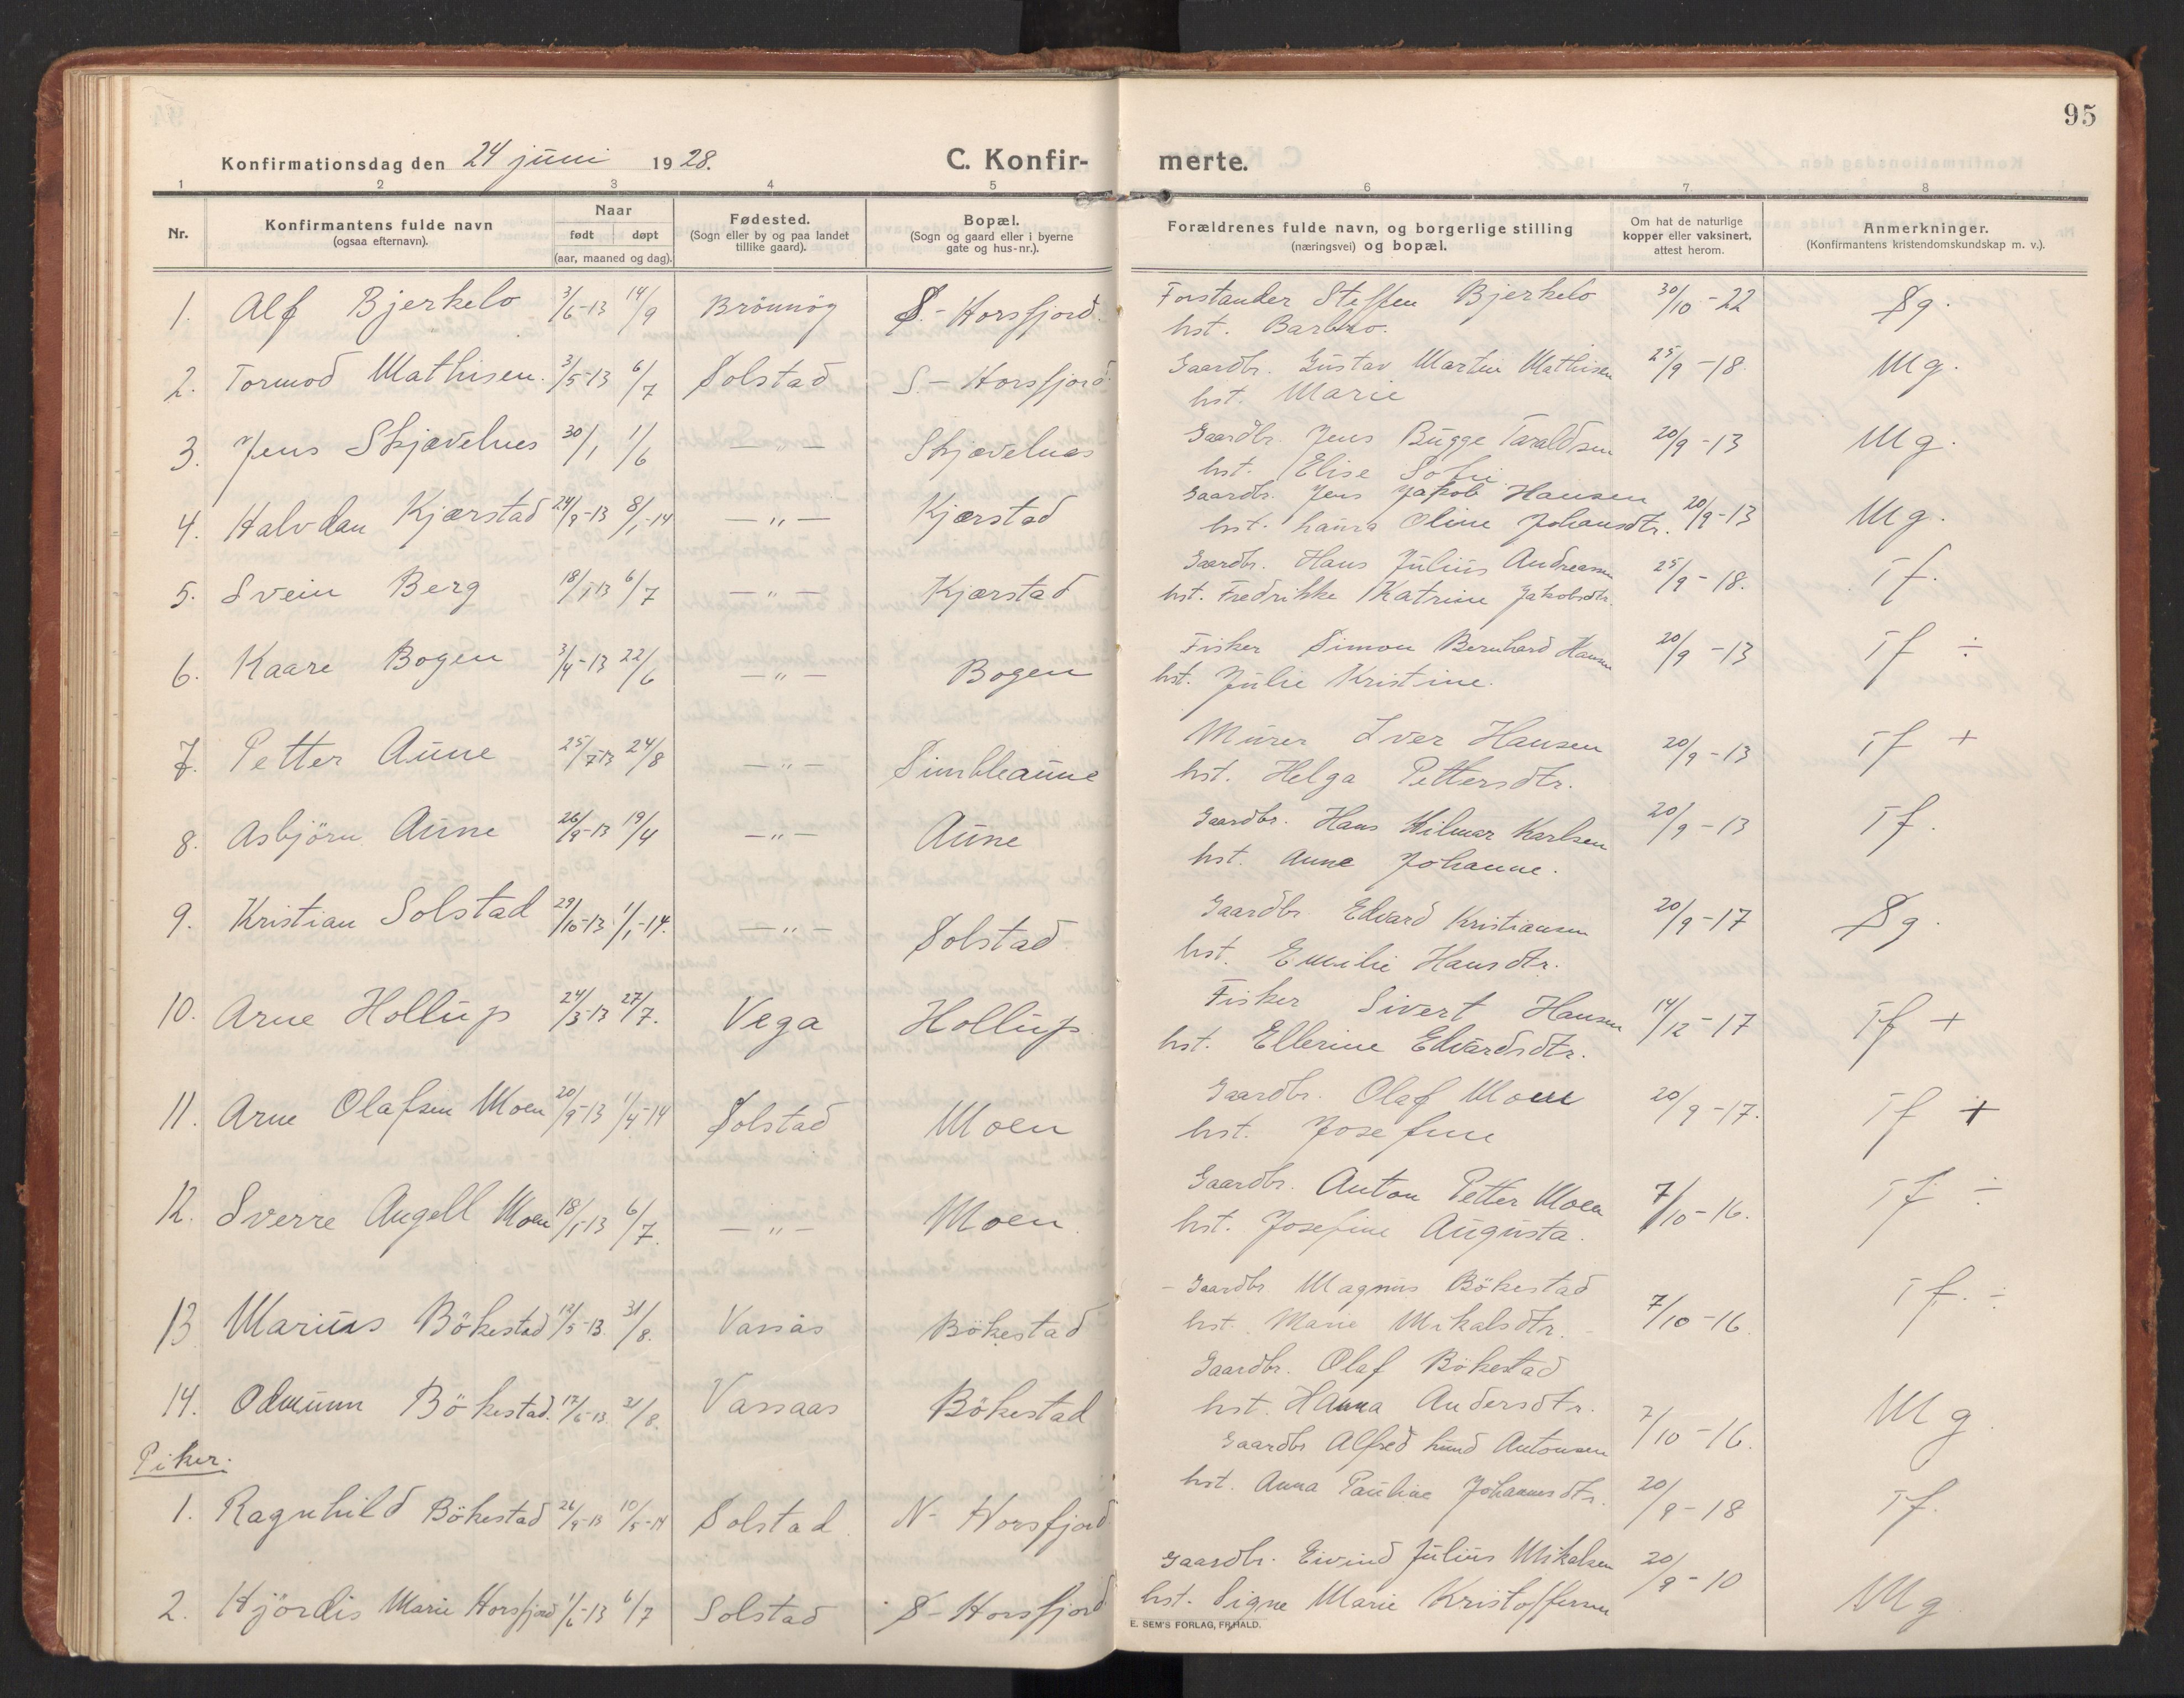 95
Konfirmationsdag den 24 juni 1928. C. Konfir- merte.
1 2 3 4 5 6 7 8
Nr. Konfirmantens fulde navn (ogsaa efternavn). Naar født døpt (aar, maaned og dag). Fødested. (Sogn eller by og paa landet tillike gaard). Bopæl. (Sogn og gaard eller i byerne gate og hus-nr.). Forældrenes fulde navn, og borgerlige stilling (næringsvei) og bopæl. Om hat de naturlige kopper eller vaksinert, attest herom. Anmerkninger. (Konfirmantens kristendomskundskap m. v.).
1. Alf Bjerkelo 3/6-13 14/9 Brönnöy S.- Horsfjord. Forstander Steffen Bjerkelo 30/10-22 Sg.
hst. Barbro.
2. Tormod Mathisen. 3/5-13 6/7 Solstad S.- Horsfjord Gaardbr. Gustav Martin Mathisen 25/9-18. Mg.
hst. Marie
3. Jens Skjævelnes 30/1 1/6 — " — Skjævelnes Gaardbr. Jens Bugge Taraldsen 20/9-13 Mg.
hst. Elise Sofie
4. Halvdan Kjærstad 24/9-13 8/1-14 — " — Kjærstad Gaardbr. Jens Jakob Hansen 20/9-13 Mg.
hst. Laura Oline Johansdtr.
5. Svein Berg 18/1 13 6/7 — " — Kjærstad Gaardbr. Hans Julius Andreassen 25/9-18. Tf.
hst. Fredrikke Katrine Jakobsdtr.
6. Kaare Bogen 3/4-13 22/6 — " — Bogen Fisker Simon Bernhard Hansen 20/9-13 Tf ÷
hst. Julie Kristine.
7. Petter Aune 25/7-13 24/8 — " — Simbleaune Murer Iver Hansen 20/9-13 Tf +
hst. Helga Pettersdtr.
8. Asbjörn Aune 19/4 — " — Aune Gaardbr. Hans Hilmar Karlsen 20/9-13 Tf.
hst. Anna Johanne.
9. Kristian Solstad 29/10-13 1/1-14. — " — Solstad. Gaardbr Edvard Kristiansen 20/9-17 Sg.
hst. Emilie Hansdtr.
10. Arne Hollup 24/3-13 27/7. Vega Hollup. Fisker Sivert Hansen 14/12-17 Tf +
hst. Ellerine Edvardsdtr.
11. Arne Olafsen Moen 20/9-13 1/4-14 Solstad Moen Gaardbr. Olaf Moen 20/9-17. Tf +
hst. Josefine
12. Sverre Angell Moen 18/5-13 6/7. — " — Moen. Gaardbr. Anton Petter Moen 7/10-16. Tf ÷
hst. Josefine Augusta.
13 Marius Bökestad 12/5-13. 31/8. Vassås Bökestad - Gaardbr Magnus Bökestad 7/10-16. Tf. ÷
hst. Marie Mikalsdtr. -
14. Odmunn Bökestad. 17/6-13. 31/8. Vassaas Bökestad Gaardbr. Olaf Bökestad 7/10-16. Mg.
hst. Hanna Andersdtr.
Piker.
1. Ragnhild Bökestad 26/9-13 10/5-14 Solstad. N- Horsfjord Gaardbr Alfred Lund Antonsen 20/9-18 Tf.
hst. Anna Pauline Johannesdtr.
2. Hjördis Marie Horsfjord 1/6-13 6/7 Solstad S- Horsfjord Gaardbr. Eivind Julius Mikalsen 20/9-10 Mg
hst. Signe Marie Kristoffersen
E. SEM'S FORLAG, FR.HALD.